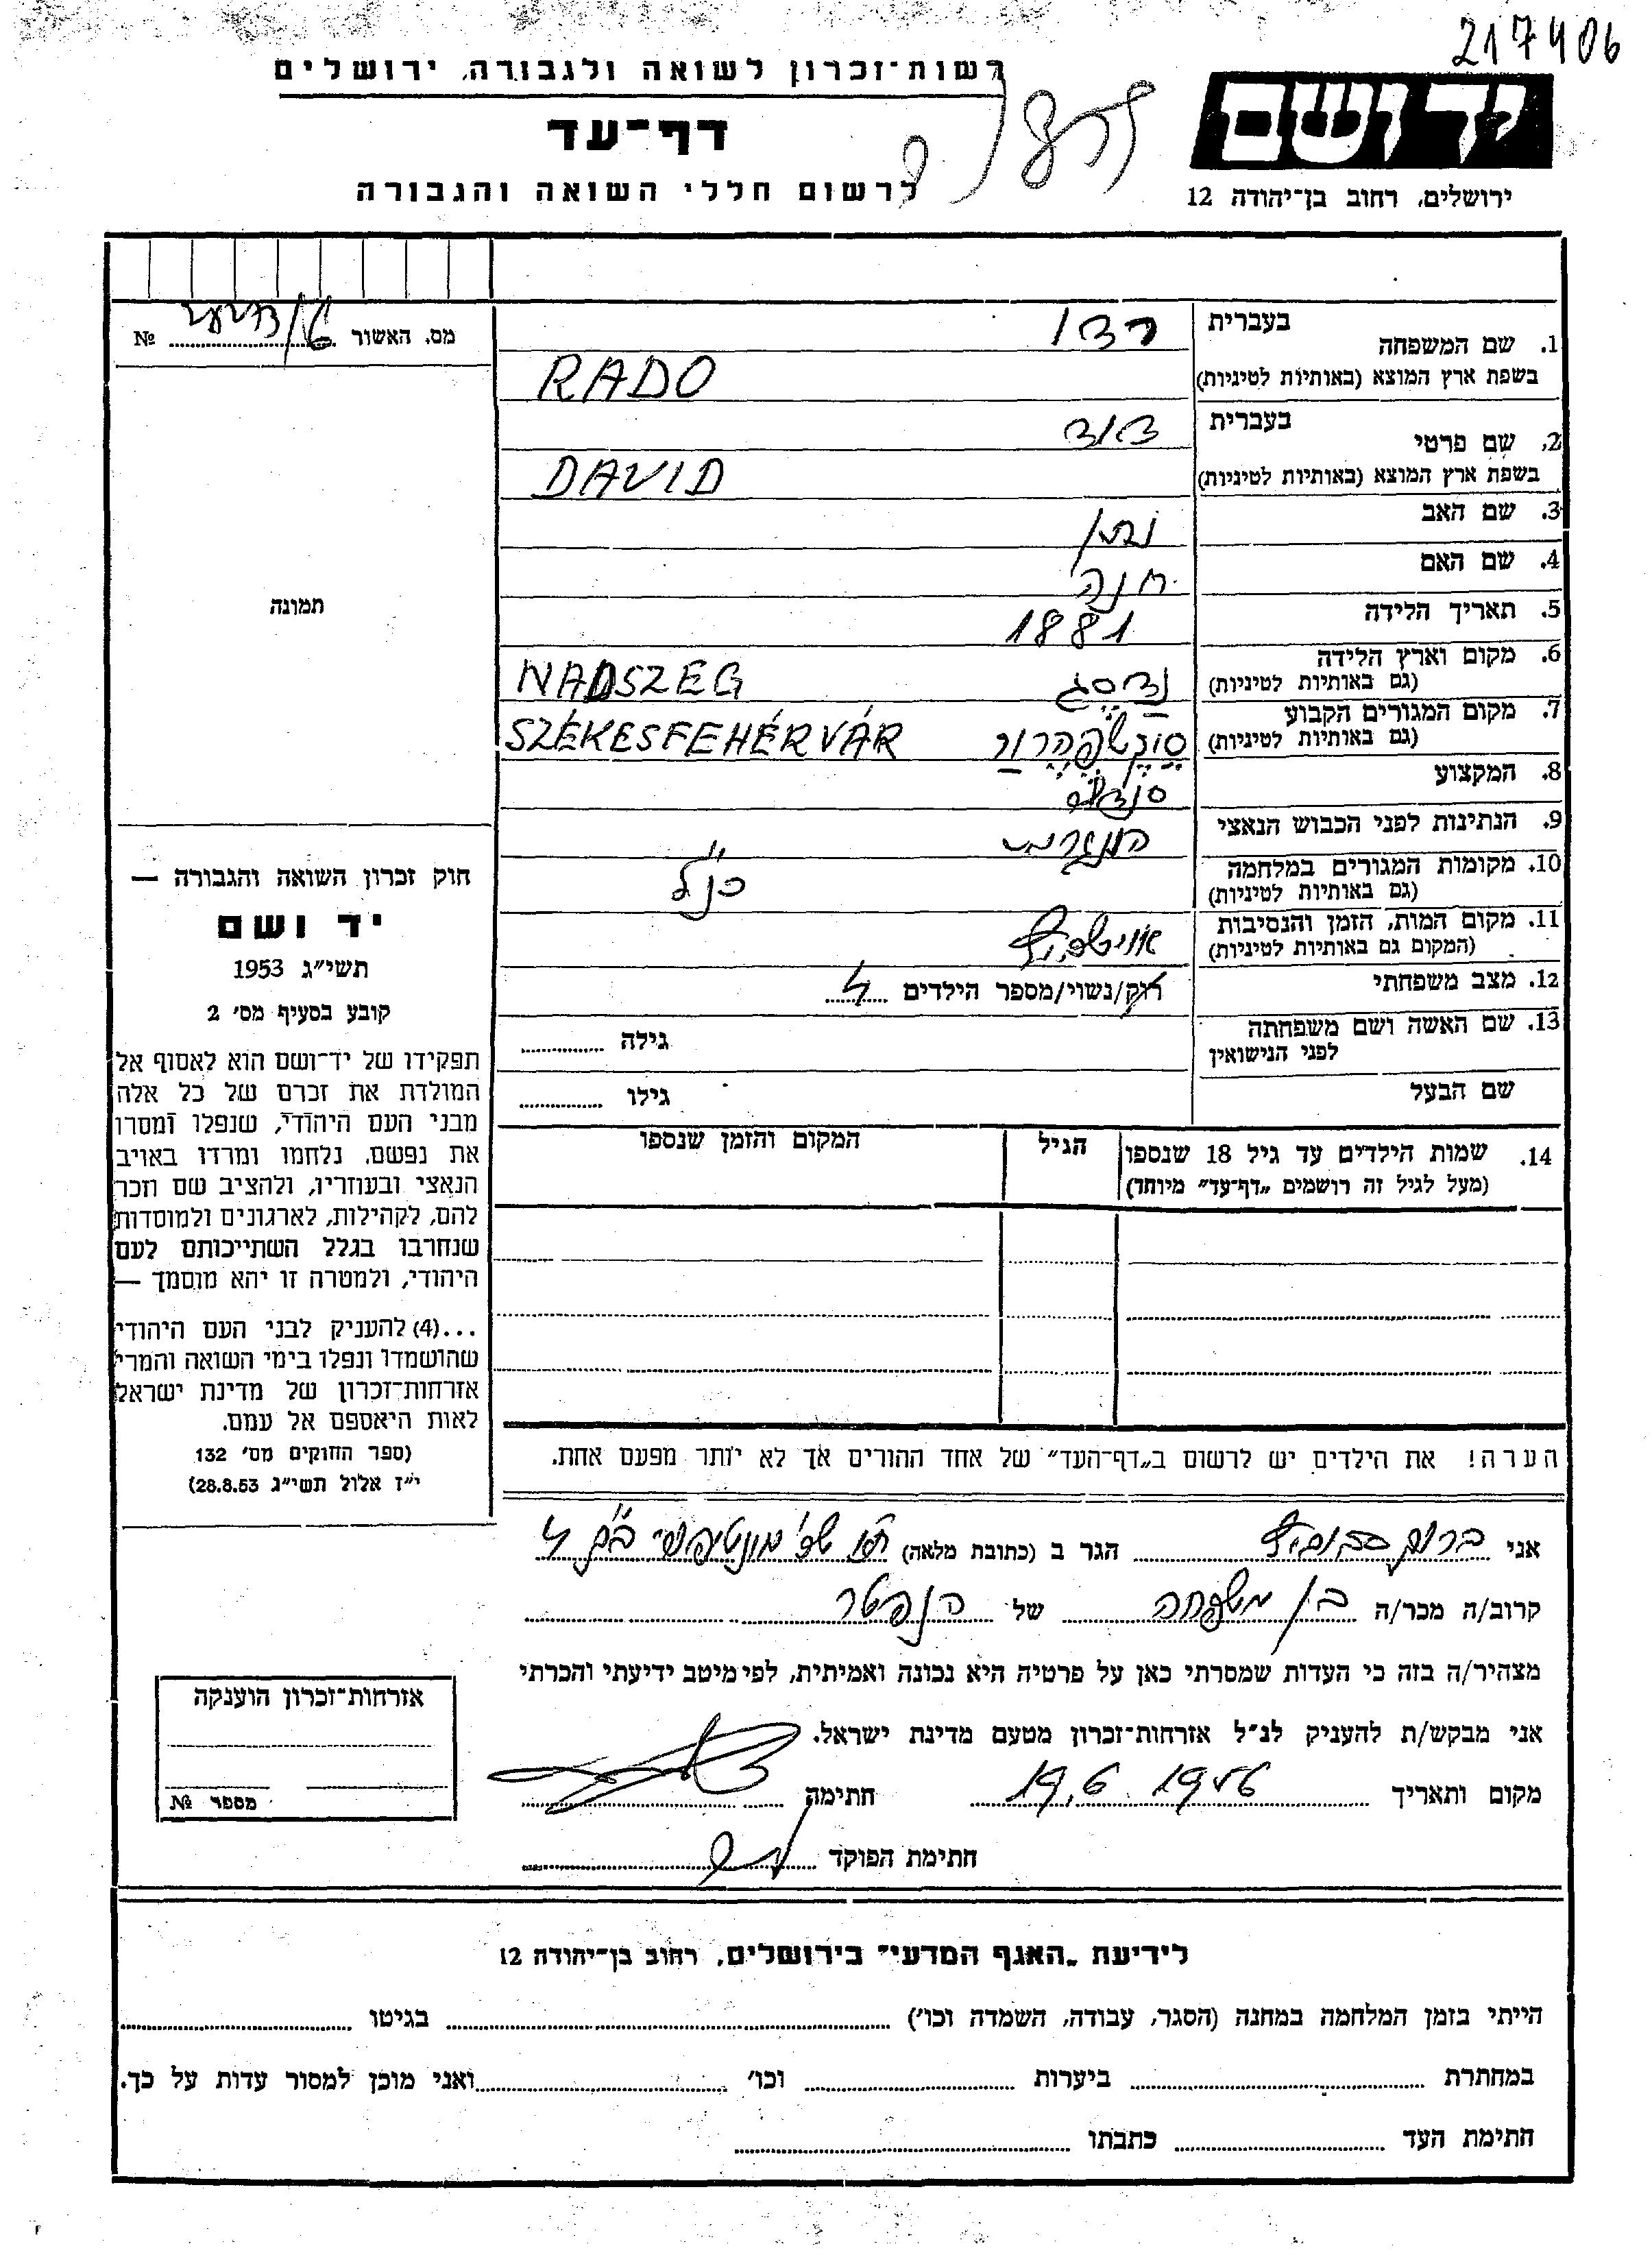 217406
רשות־זכרון לשואה ולגבורה, ירושלים
יד ושם
דף־עד
ירושלים, רחוב בן־יהודה 12
לרשום חללי השואה והגבורה
מס. האשור № 
1. שם המשפחה בעברית רדו
בשפת ארץ המוצא (באותיות לטיניות) RADO
2. שם פרטי בעברית דוד
בשפת ארץ המוצא (באותיות לטיניות) DAVID
3. שם האב נתן
4. שם האם חנה
5. תאריך הלידה 1881
6. מקום וארץ הלידה נדסג NADSZEG
(גם באותיות לטיניות)
7. מקום המגורים הקבוע SZÉKESFEHÉRVÁR
(גם באותיות לטיניות)
8. המקצוע סנדלר
9. הנתינות לפני הכבוש הנאצי הונגרית
10. מקומות המגורים במלחמה כנ"ל
(גם באותיות לטיניות)
11. מקום המות, הזמן והנסיבות אושביץ
(המקום גם באותיות לטיניות)
12. מצב משפחתי רוק/נשוי/מספר הילדים 4
13. שם האשה ושם משפחתה גילה
לפני הנישואין
שם הבעל גילו
14. שמות הילדים עד גיל 18 שנספו הגיל המקום והזמן שנספו
(מעל לגיל זה רושמים „דף־עד" מיוחד)
תמונה
חוק זכרון השואה והגבורה —
יד ושם
תשי"ג 1953
קובע בסעיף מס' 2
תפקידו של יד־ושם הוא לאסוף אל
המולדת את זכרם של כל אלה
מבני העם היהודי, שנפלו ומסרו
את נפשם, נלחמו ומרדו באויב
הנאצי ובעוזריו, ולהציב שם וזכר
להם, לקהילות, לארגונים ולמוסדות
שנחרבו בגלל השתייכותם לעם
היהודי, ולמטרה זו יהא מוסמך —
...(4) להעניק לבני העם היהודי
שהושמדו ונפלו בימי השואה והמרי
אזרחות־זכרון של מדינת ישראל
לאות היאספם אל עמם.
(ספר החוקים מס' 132
י"ז אלול תשי"ג 28.8.53)
הערה! את הילדים יש לרשום ב„דף־העד" של אחד ההורים אך לא יותר מפעם אחת.
אני ברוך הגר ב (כתובת מלאה) 4
קרוב/ה מכר/ה בן משפחה של הנפטר
מצהיר/ה בזה כי העדות שמסרתי כאן על פרטיה היא נכונה ואמיתית, לפי מיטב ידיעתי והכרתי
אני מבקש/ת להעניק לנ"ל אזרחות־זכרון מטעם מדינת ישראל.
מקום ותאריך 19.6 1956 חתימה
חתימת הפוקד
אזרחות־זכרון הוענקה
מספר №
לידיעת „האגף המדעי" בירושלים, רחוב בן־יהודה 12
הייתי בזמן המלחמה במחנה (הסגר, עבודה, השמדה וכו') בגיטו
במחתרת ביערות וכו' ואני מוכן למסור עדות על כך.
חתימת העד כתבתו